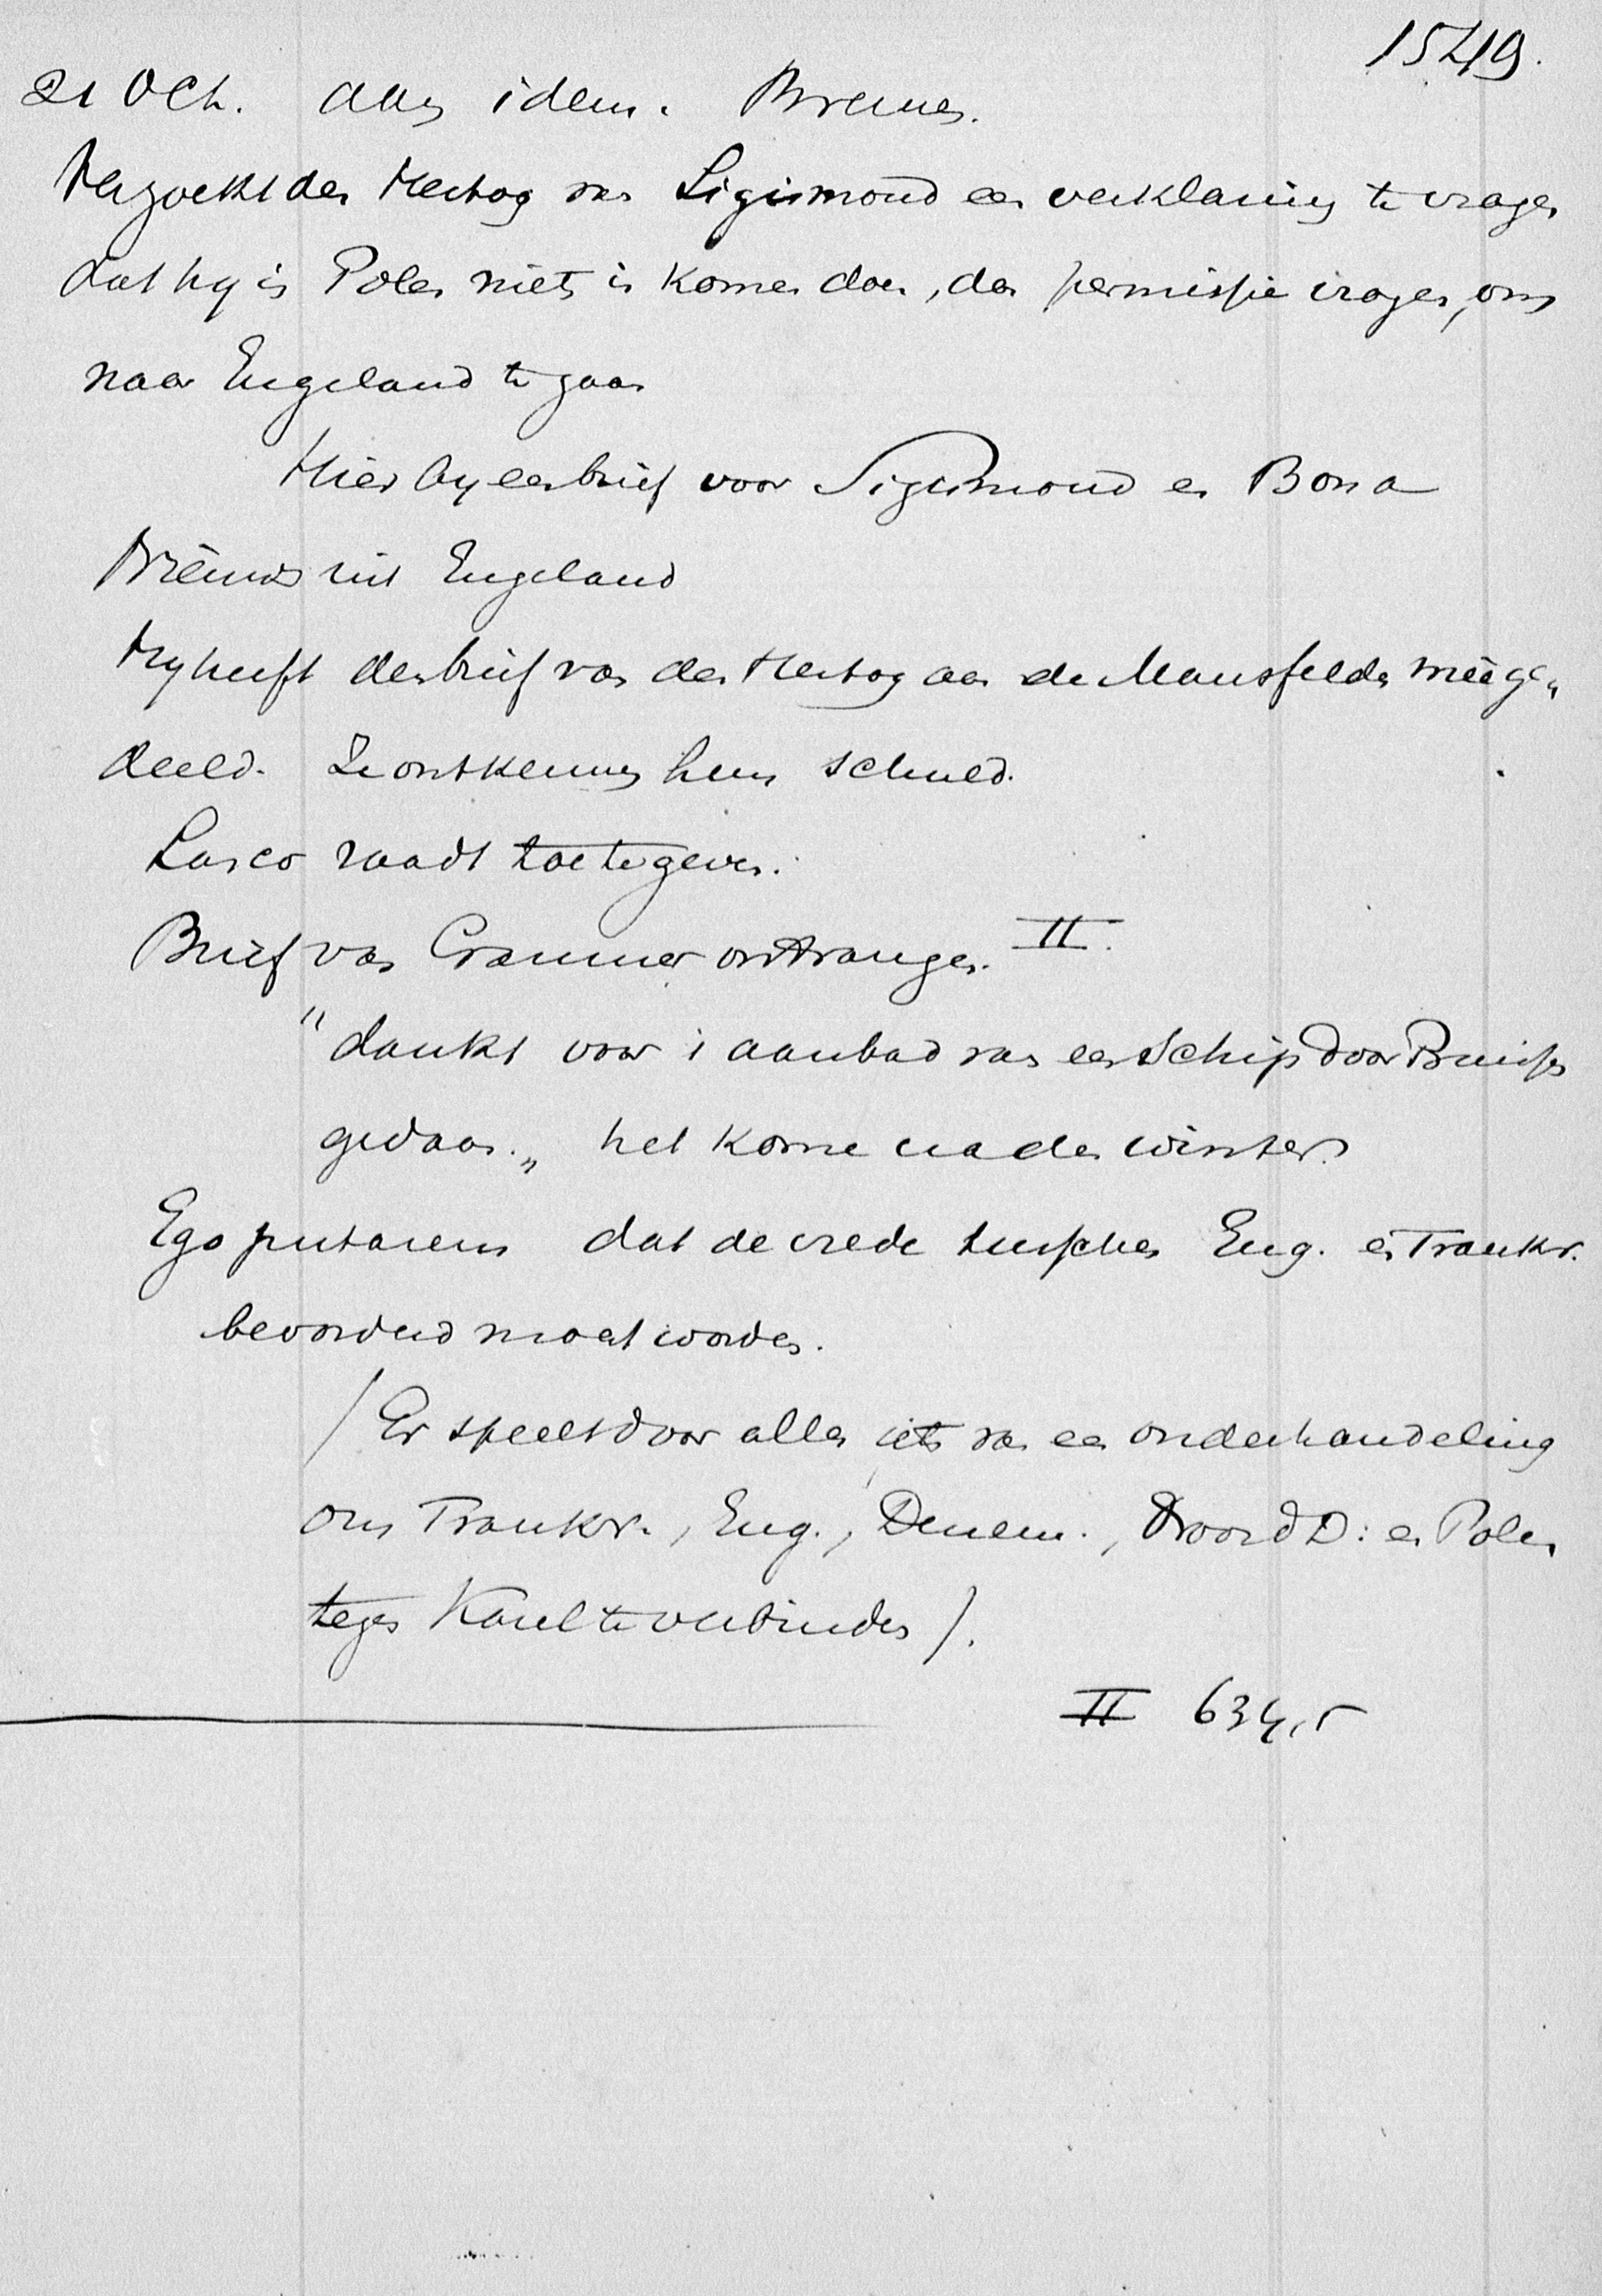 1549.
21 Oct. aan idem. Bremen.
Verzoekt den Hertog van Sigismond een verklaring te vragen
dat hy in Polen niets is komen doen, den permissie vragen, om
naar Engeland te gaan
Hierby een brief voor Sigismond en Bona
Nieuws uit Engeland
Hy heeft den brief van den Hertog aan de Mansfelds meege„
deeld. Ze ontkennen hun schuld.
Lasco raadt toe te geven.
Brief van Cranmer ontvangen. II.
"dankt voor 't aanbod van een Schip door Pruissen
gedaan.„ het kome na den winter.
Ego putarem dat de vrede tusschen Eng. en Frankr.
bevorderd moet worden.
/ Er speelt door alles iets van een onderhandeling
om Frankr., Eng., Denem., Noord D: en Polen
tegen Karel te verbinden /.
II 634,5